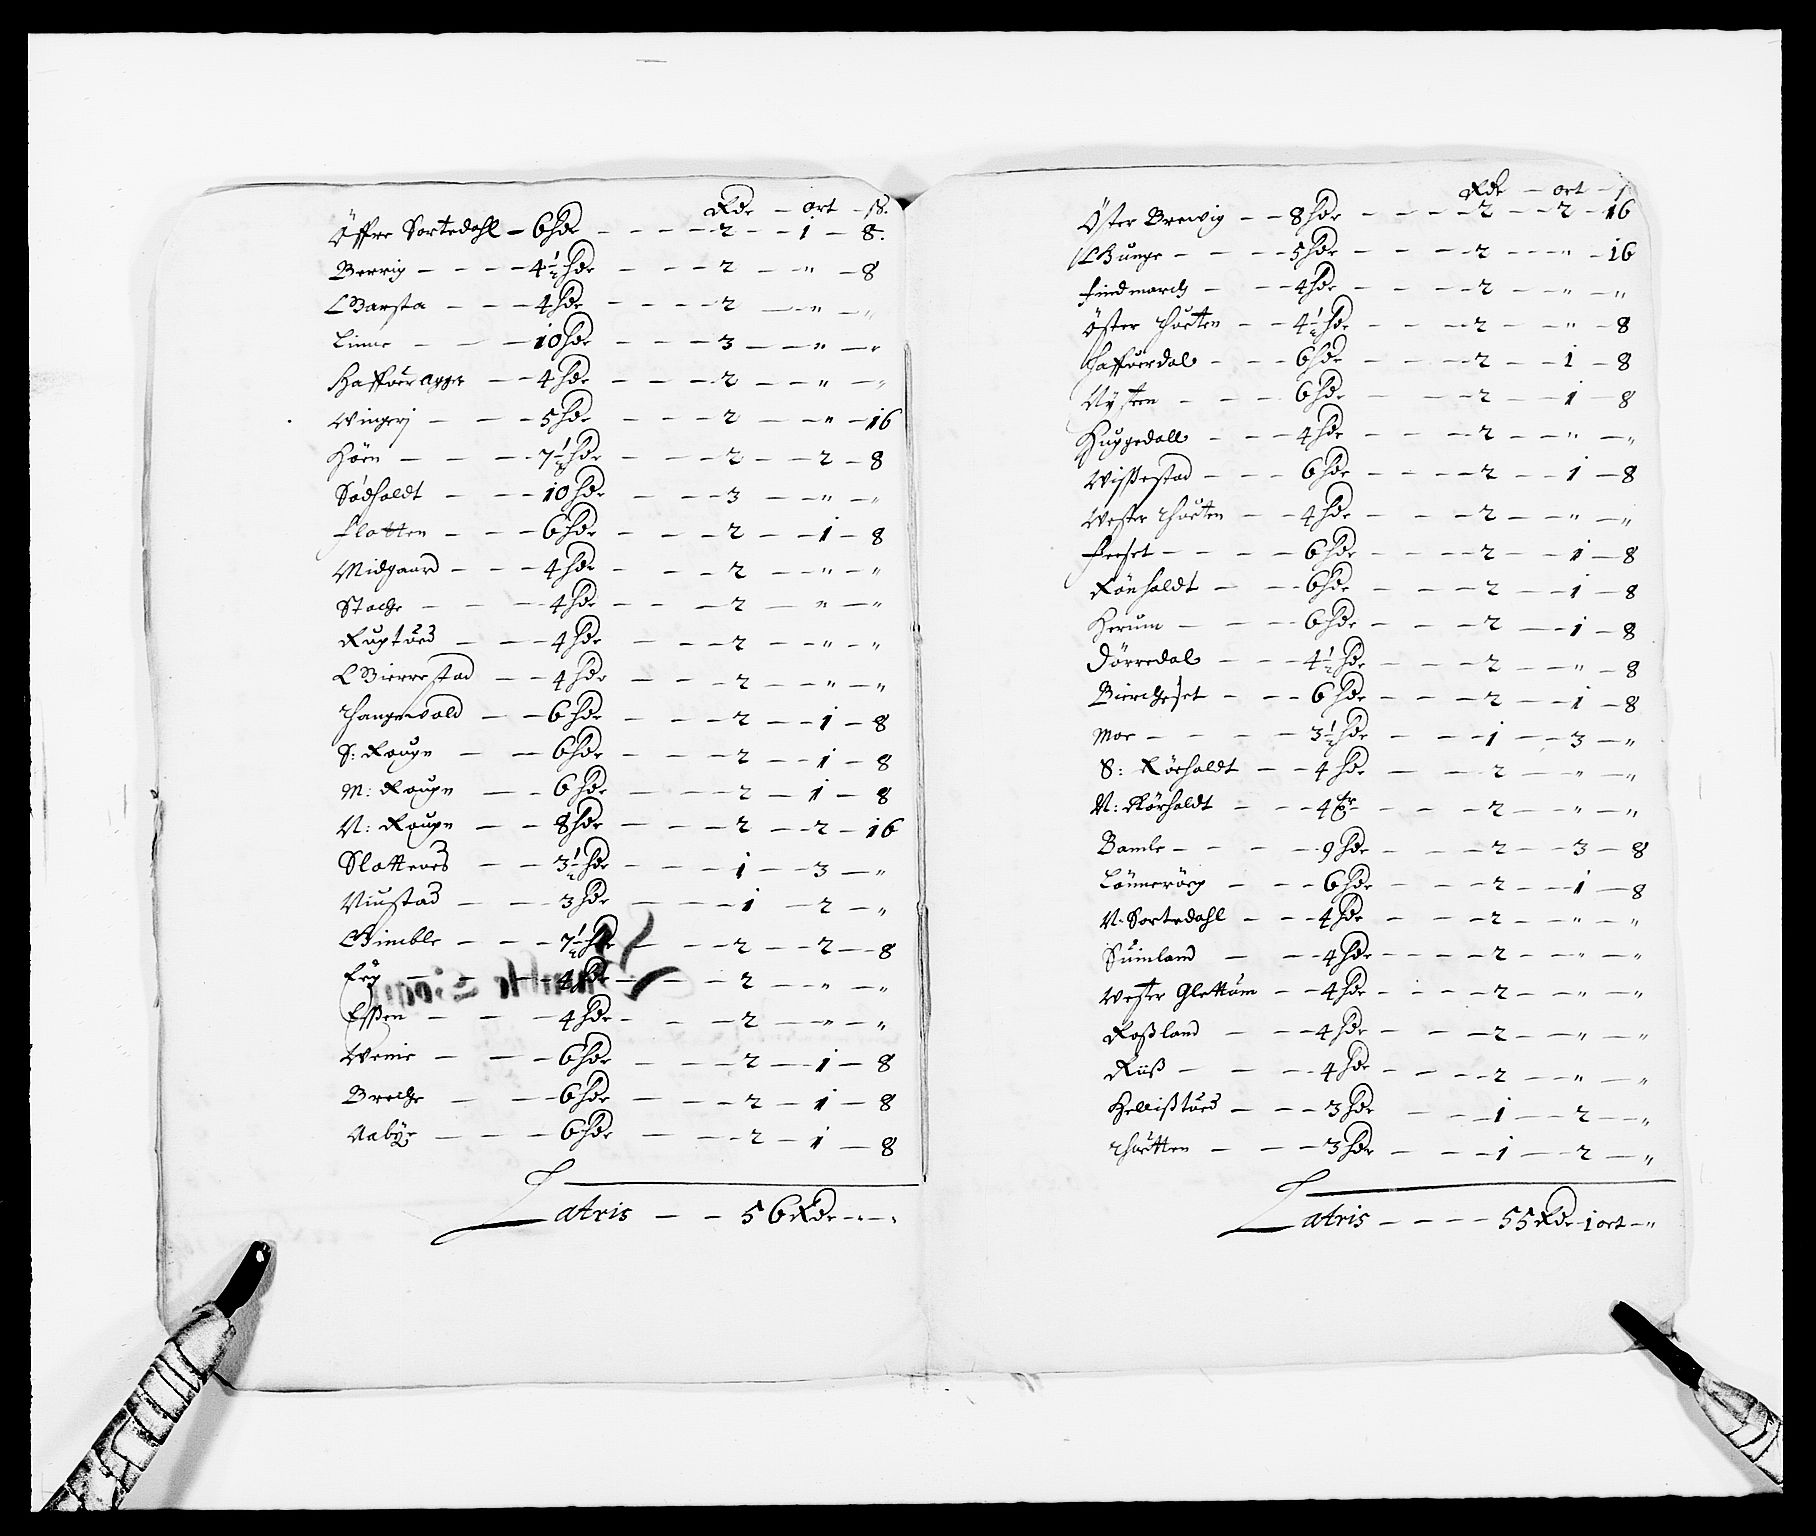 Rdr — ort — ß.
Öffre Sortedahl — 6 hdr — — — — 2 — — 1 — 8.
Berrig — — — — 4½ hdr — — — 2 — — " — 8
Barsta — — — 4 hdr — — — — 2 — — " — "
Linne — — — 10 hdr — — — 3 — — " — "
Haffuer agger — — 4 hdr — — — 2 — — " — "
Wingerj — — — 5 hdr — — — 2 — — " — 16
Höen — — — 7½ hdr — — — 2 — — 2 — 8
Södholdt — — — 10 hdr — — — 3 — — " — "
Flotten — — — 6 hdr — — — 2 — — 1 — 8
Midgaard — — — 4 hdr — — — 2 — — " — "
Stocke — — — 4 hdr — — — 2 — — " — "
Ruptöed — — — 4 hdr — — — 2 — — " — "
Bierrestad — — 4 hdr — — — 2 — — " — "
Thangenvald — — 6 hdr — — — 2 — — 1 — 8
S: Rougn — — 6 hdr — — — 2 — — 1 — 8
M: Rougn — — 6 hdr — — — 2 — 1 — 8
N: Rougn — — 8 hdr — — — 2 — — 2 — 16
Slotteres — — 3½ hdr — — — 1 — — 3 — "
Niustad — — — 3 hdr — — — 1 — 2 — "
Wimble — — — 7½ hdr — — — 2 — — 2 — 8
— — 4 hdr — — — 2 — — " — "
— — — 4 hdr — — — 2 — — " — "
Wenie — — — 6 hdr — — — 2 — — 1 — 8
Brecke — — — 6 hdr — — — 2 — 1 — 8
Aabÿe — — — 6 hdr — — — 2 — 1 — 8
Latris — — 56 Rdr — " — "
Rdr — ort — ß
Öster Brewig — — 8 hdr — — — — 2 — — 2 — 16
Bunge — — — 5 hdr — — — 2 — — " — 16
Findmarch — — 4 hdr — — — 2 — — " — "
Öster — — 4½ hdr — — — 2 — — " — 8
Haffuerdal — — — 6 hdr — — — 2 — — 1 — 8
Nÿsteen — — — 6 hdr — — — 2 — — 1 — 8
Huggedall — — — 4 hdr — — — 2 — — " — "
Wissestad — — — 6 hdr — — — 2 — — 1 — 8
Wester — — 4 hdr — — — 2 — — " — "
Feeset — — — — 6 hdr — — — 2 — — 1 — 8
Rönholdt — — — 6 hdr — — — 2 — — 1 — 8
Herum — — — — 6 hdr — — — 2 — — 1 — 8
Dörredal — — — 4½ hdr — — — 2 — — " — 8
Bierckeset — — — 6 hdr — — — 2 — — 1 — 8
Moe — — — — 3½ hdr — — — 1 — — 3 — "
S: Rörholdt — — 4 hdr — — — 2 — — " — "
N: Rörholdt — — — 4 — — — 2 — — " — "
Bamle — — — — 9 hdr — — — 2 — — 3 — 8
Lönnerörg — — — 6 hdr — — — 2 — — 1 — 8
N: Sortedahl — — — 4 hdr — — — 2 — — " — "
Suimland — — — 4 hdr — — — 2 — — " — "
Wester Glettöm — — 4 hdr — — — 2 — — " — "
Roßland — — — 4 hdr — — — 2 — — " — "
Riiß — — — — 4 hdr — — — 2 — — " — "
Hellißtöed — — — 3 hdr — — — 1 — — 2 — "
— — — 3 hdr — — — 1 — — 2 — "
Latris — — — — 55 Rdr 1 ort — "